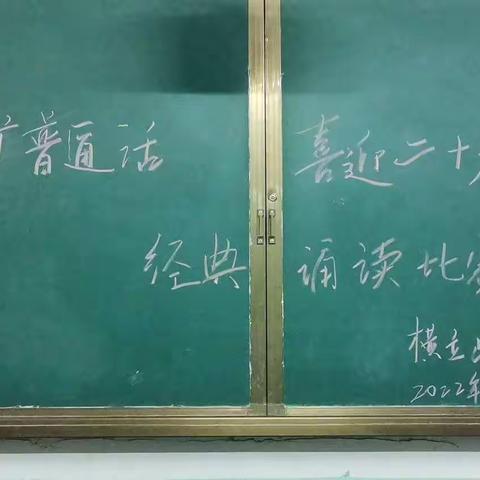 普通话 喜迎二十
经典 诵读比
横
2022年